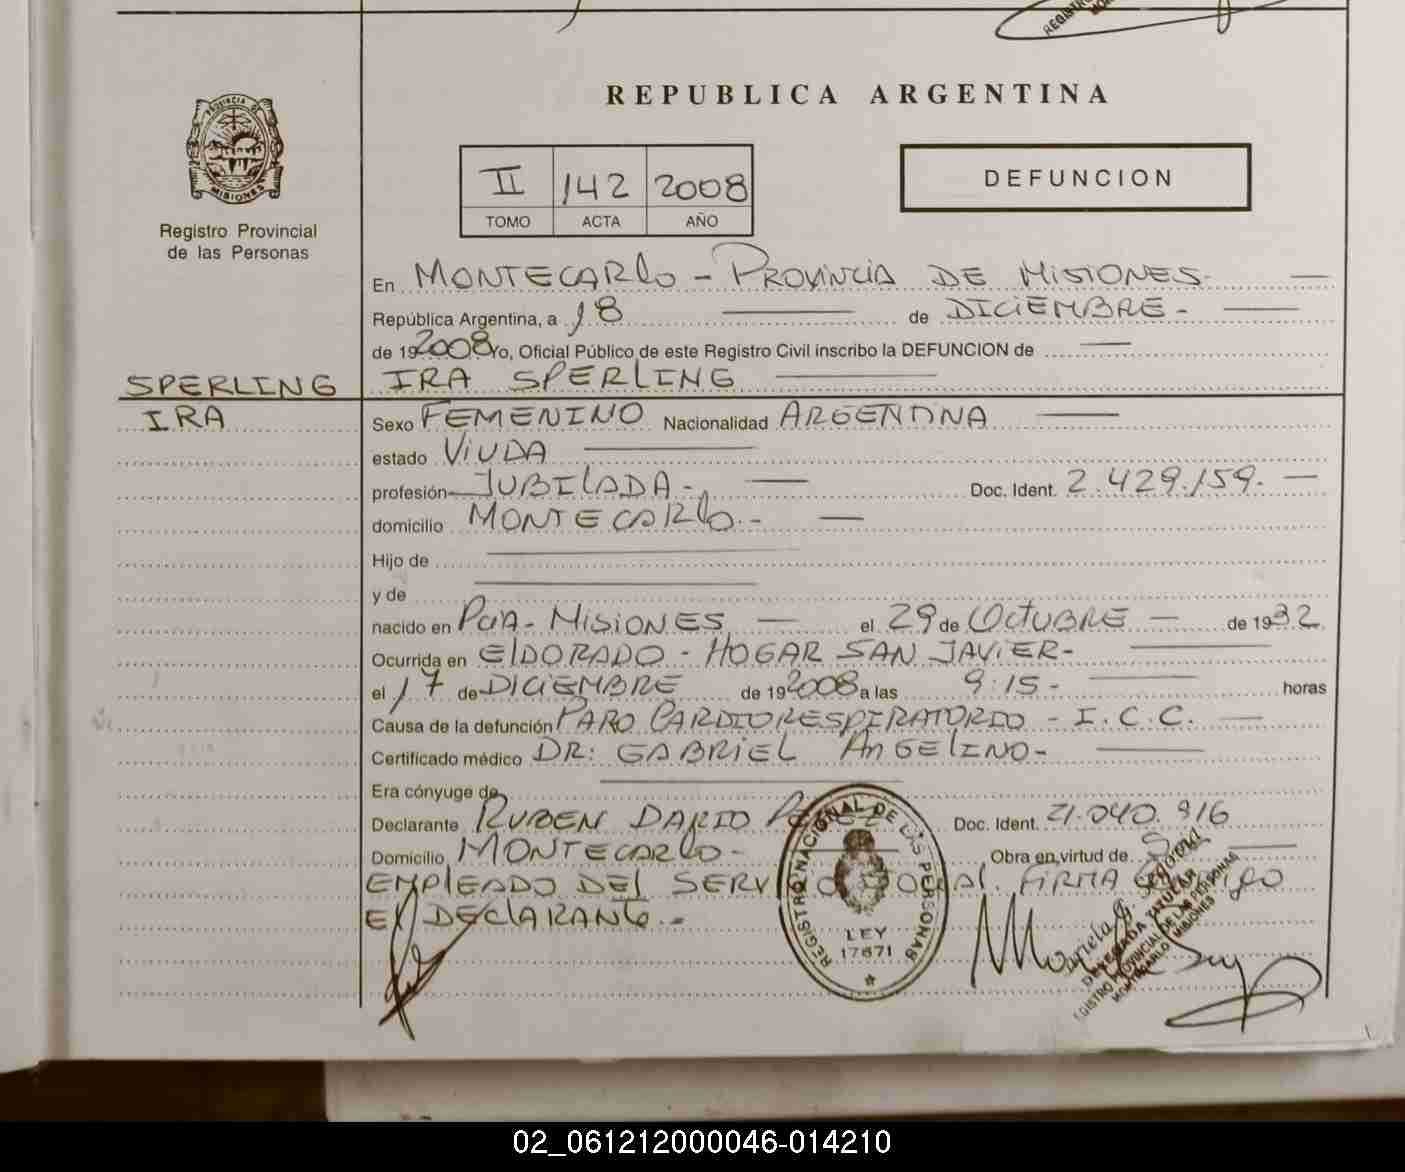 REPUBLICA ARGENTINA
PROVINCIA DE
MISIONES
Registro Provincial
de las Personas
II 142 2008
TOMO ACTA AÑO
DEFUNCION
En MONTECARLO - PROVINCIA DE MISIONES
República Argentina, a 18 de DICIEMBRE -
de 192008 Yo, Oficial Público de este Registro Civil inscribo la DEFUNCION de
SPERLING
IRA
IRA SPERLING
Sexo FEMENINO Nacionalidad ARGENTINA
estado VIUDA
profesión JUBILADA - Doc. Ident. 2.429.159.
domicilio MONTECARLO.-
Hijo de
y de
nacido en PciA- MISIONES el 29 de OCTUBRE de 1932
Ocurrida en ELDORADO - HOGAR SAN JAVIER-
el 17 de DICIEMBRE de 192008 a las 9:15- horas
Causa de la defunción PARO CARDIORESPIRATORIO - I.C.C.
Certificado médico DR: GABRIEL ANGELINO-
Era cónyuge de
Declarante RUBEN DARIO Doc. Ident. 21.040.916
Domicilio MONTECARLO- Obra en virtud de
EMPLEADO DEL SERVICIO SOCIAL. FIRMA
EL DECLARANTE.-
REGISTRO NACIONAL DE LAS PERSONAS
LEY
17671
DELEGADA TITULAR
REGISTRO PROVINCIAL DE LAS PERSONAS
MONTECARLO MISIONES
02_061212000046-014210